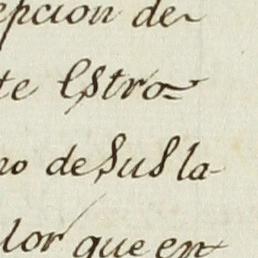 epcion de
te Estro=
no de sus la-
lor que en-